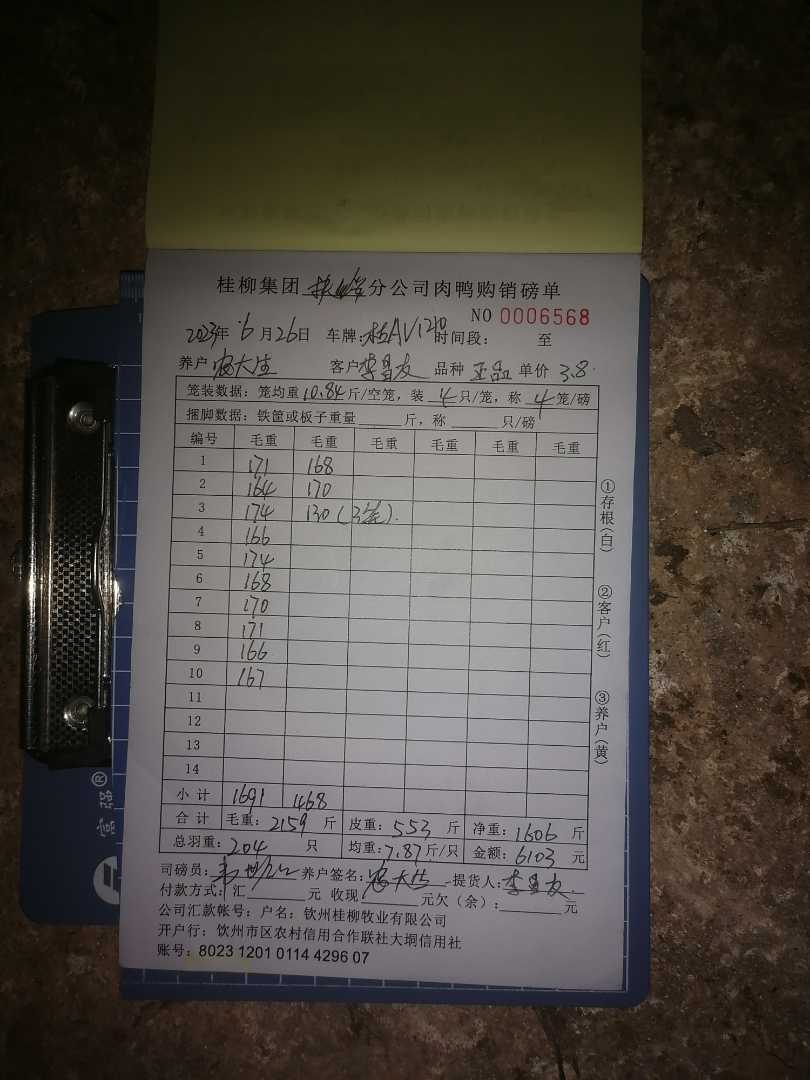 桂柳集团 分公司肉鸭购销磅单
NO 0006568
2023年 6月26日 车牌: 时间段: 至
养户 大生 客户 李昌友 品种 单价 3.8
笼装数据: 笼均重 10.84 斤/空笼, 装 4 只/笼, 称 4 笼/磅
捆脚数据: 铁筐或板子重量 斤, 称 只/磅
编号 毛重 毛重 毛重 毛重 毛重 毛重
1 171 168
2 164 170
3 174 130 (3笼).
4 166
5 174
6 168
7 170
8 171
9 166
10 167
11
12
13
14
小计 1691 468
合计 毛重: 2159 斤 皮重: 553 斤 净重: 1606 斤
总羽重: 204 只 均重: 7.87 斤/只 金额: 6103 元
司磅员: 养户签名: 大生 提货人: 李昌友
付款方式: 汇 元 收现 元欠(余): 元
公司汇款帐号: 户名: 钦州桂柳牧业有限公司
开户行: 钦州市区农村信用合作联社大垌信用社
账号: 8023 1201 0114 4296 07
①存根(白)
②客户(红)
③养户(黄)
富强®